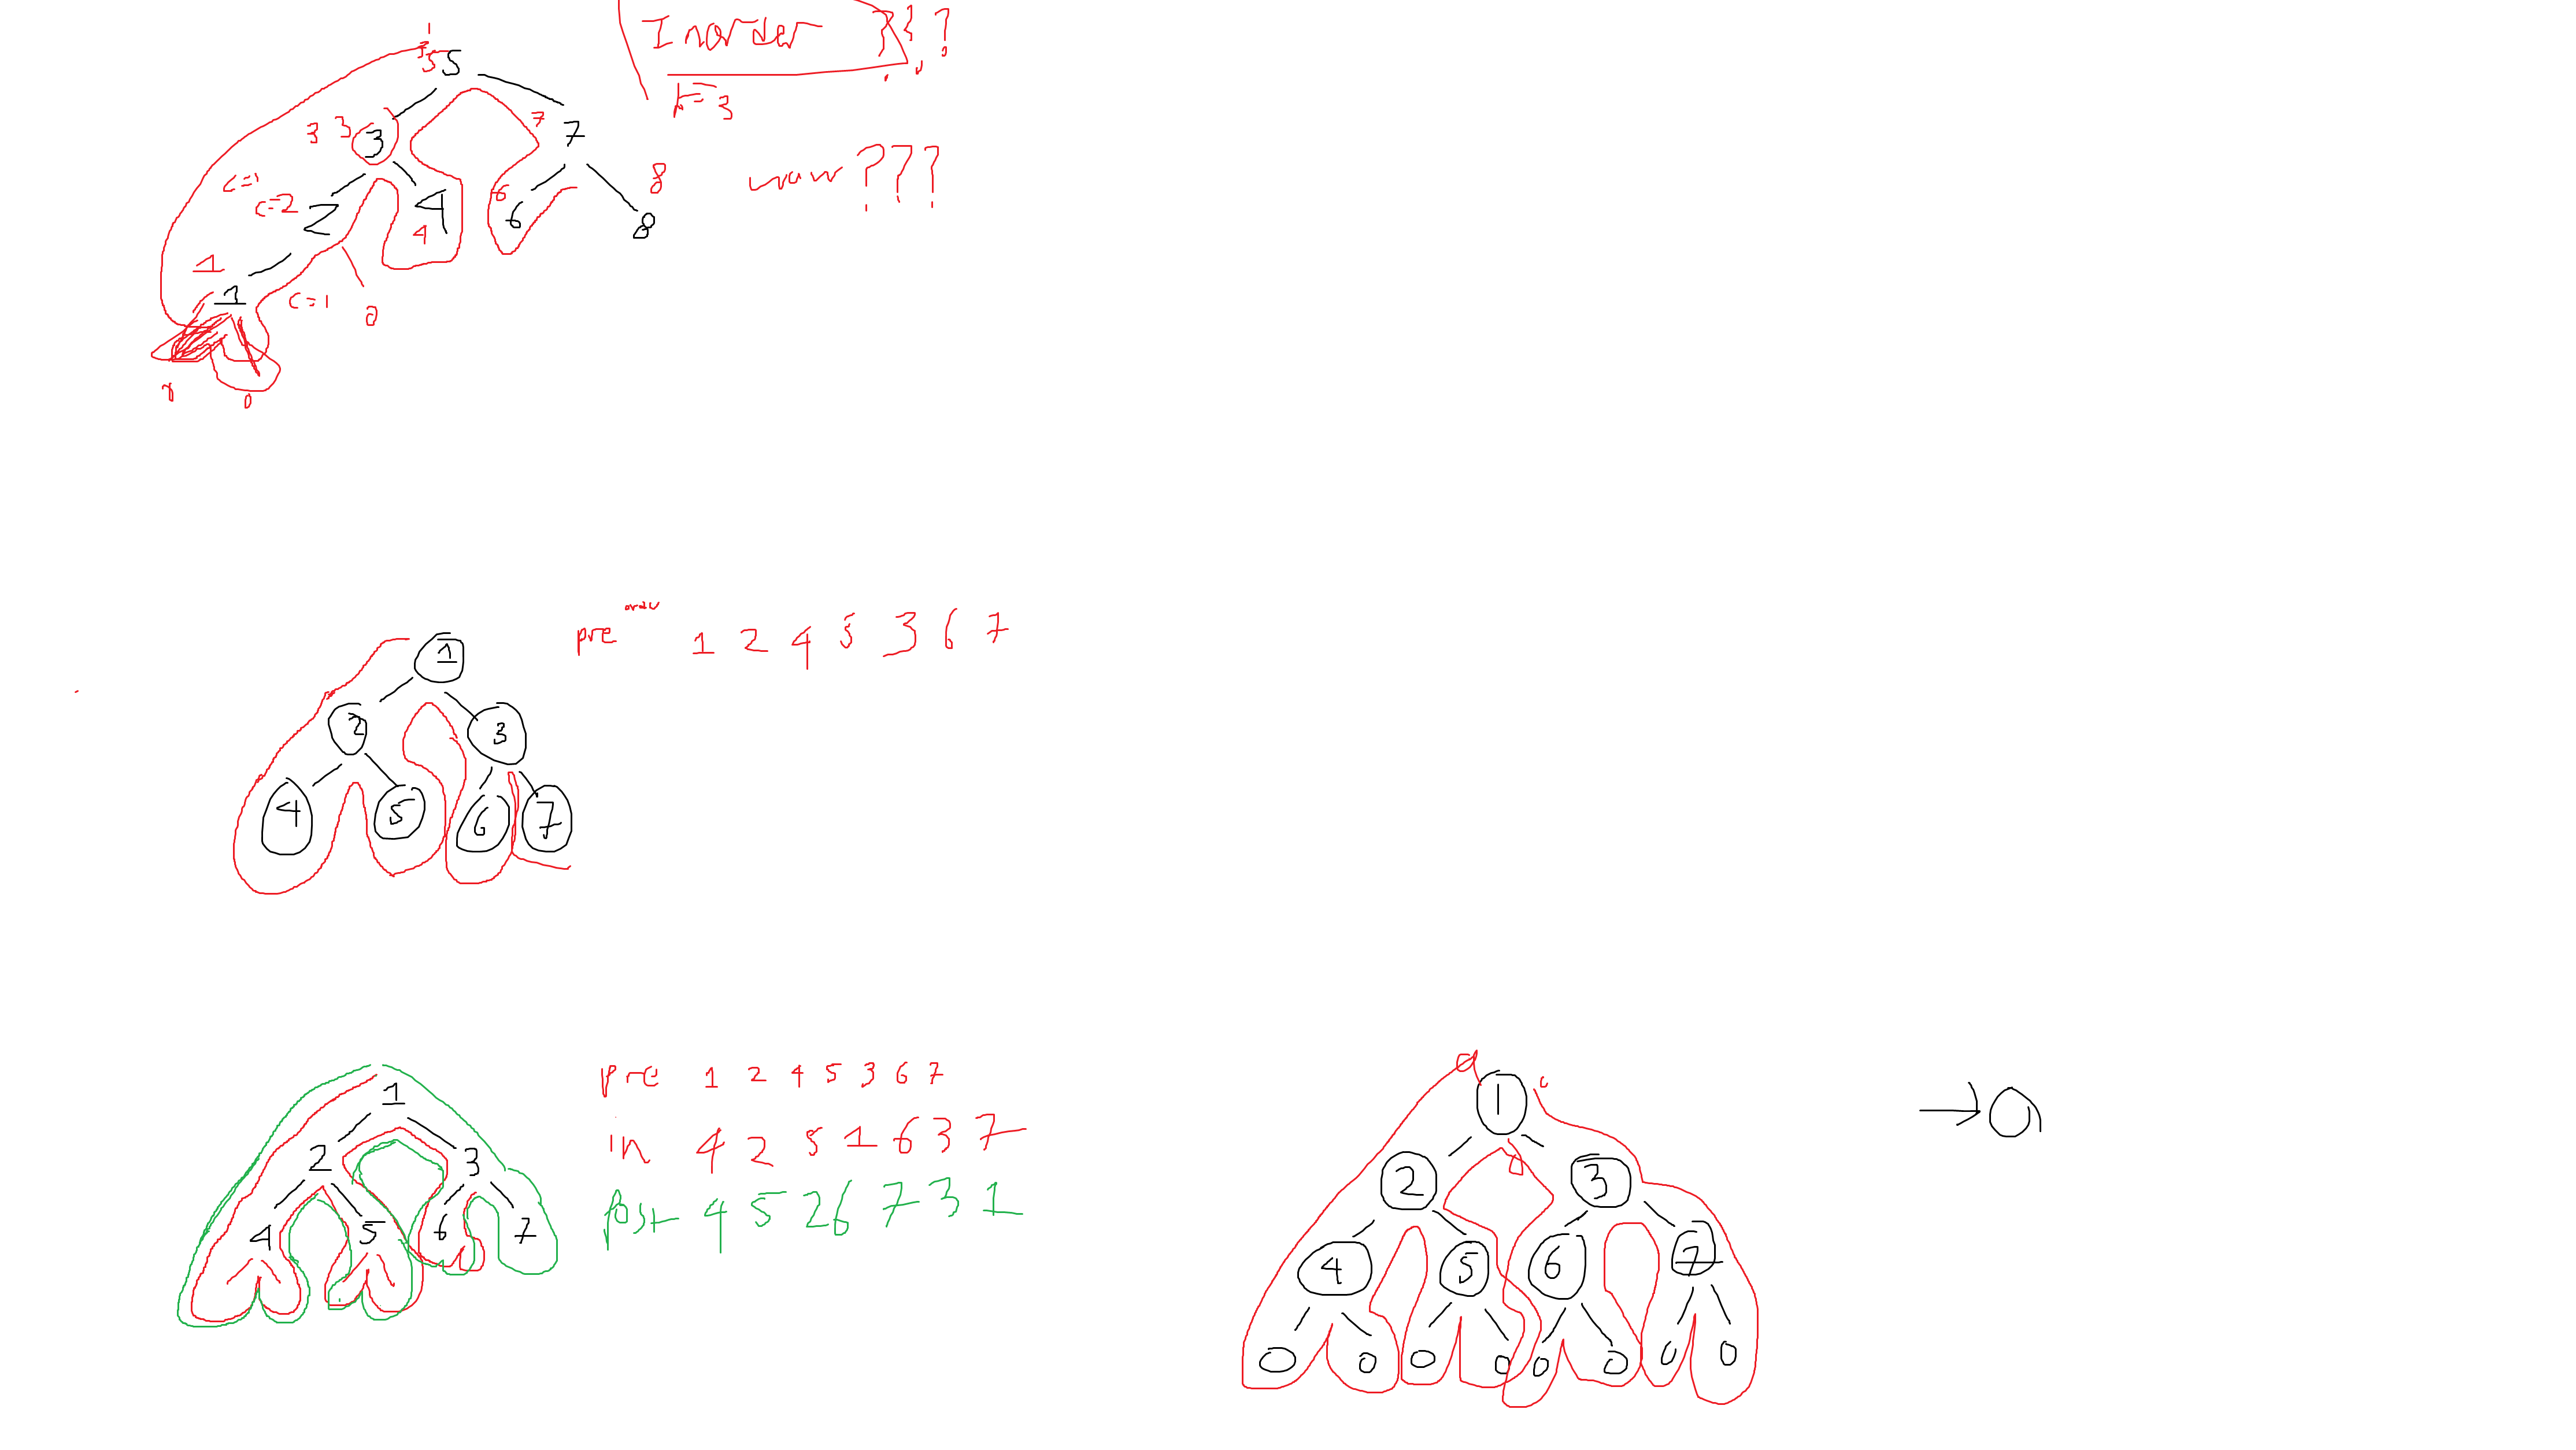 Inorder } } ?
k=3
5 5
3 3 3
7 7
???
c=1
c=2 2
4
4
6 6
8
8
1
1
c=1
0
0
pre 1 2 4 5 3 6 7
1
2 3
4 5 6 7
pre 1 2 4 5 3 6 7
in 4 2 5 1 6 3 7
post 4 5 2 6 7 3 1
1
2 3
4 5 6 7
1
2 3
4 5 6 7
0 0 0 0 0 0 0 0